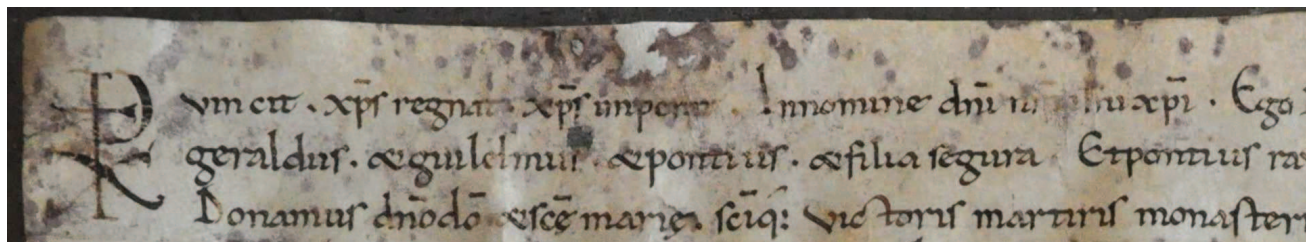 vincit . xp̄s regnat . xp̄s inperat . In nomine dn̄i ihu xp̄i . Ego
geraldus . & guilelmus . & pontius . & filia segura Et pontius ra
Donamus dn̄o dō & scę̄ marię . scīq; victoris martiris monaster